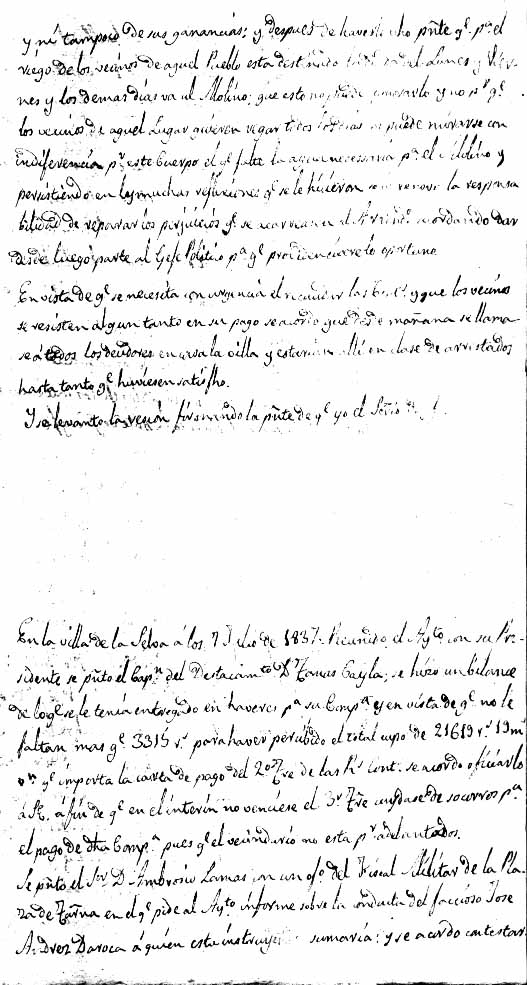 y ni tampoco de sus ganancias: y despues de haverse hecho pñte qᵉ pᵃ el
riego de los vecinos de aquel Pueblo esta destinado del Lunes y Vier-
nes y los demas dias va al Molino; que esto no puede ignorarlo y no pʳ qᵉ
los vecinos de aquel Lugar quieren regar todos los dias se puede mirarse con
indiferencia pʳ este Cuerpo el qᵉ falte la agua necessaria pᵃ el Molino y
persistiendo en las muchas reflexiones qᵉ se le hicieron se le renovó la responsa
bilidad de reparar los perjuicios qᵉ se acarrean al Arrendᵒ acordando dar
desde luego parte al Gefe Politico pᵃ qᵉ providenciare lo oportuno.
En vista de qᵉ se necesita con urgencia el recaudar las Contˢ y que los vecinos
se resisten algun tanto en su pago se acordo que desde mañana se llama
se á todos los deudores en casa la villa y estarian alli en clase de arrestados
hasta tanto qᵉ huviesen satisfho.
Y se levanto la sesion firmando la pñte de qᵉ yo el Sᵉñᵒ
En la villa de la Selva á los 7 Julio de 1837. Reunido el Aytᵒ con su Pre-
sidente se pñto el Capⁿ del Destacamᵗᵒ Dⁿ Tomas Gayla; se hizo un balance
de lo qᵉ se le tenia entregado en haveres pᵃ su Compᵃ y en vista de qᵉ no le
faltan mas qᵉ 3315 rˢ para haver percibido el total cupo de 21619 rˢ 19 m
vⁿ qᵉ importa la carta de pago del 2º Tre de las Rˢ Cont. se acordo oficiarlo
á S.E. á fin de qᵉ en el interin no venciese el 3º Tre mandase de socorros pᵃ
el pago de dha Compᵃ pues qᵉ el vecindario no esta pʳ adelantados.
Se pñto el Sʳ D. Ambrosio Lamas con un ofᵒ del Fiscal Militar de la Pla-
za de Tarrña en el qᵉ pide al Aytᵒ informe sobre la conducta del faccioso Jose
Daroca á quien esta instruyendo sumaria; y se acordo contestar